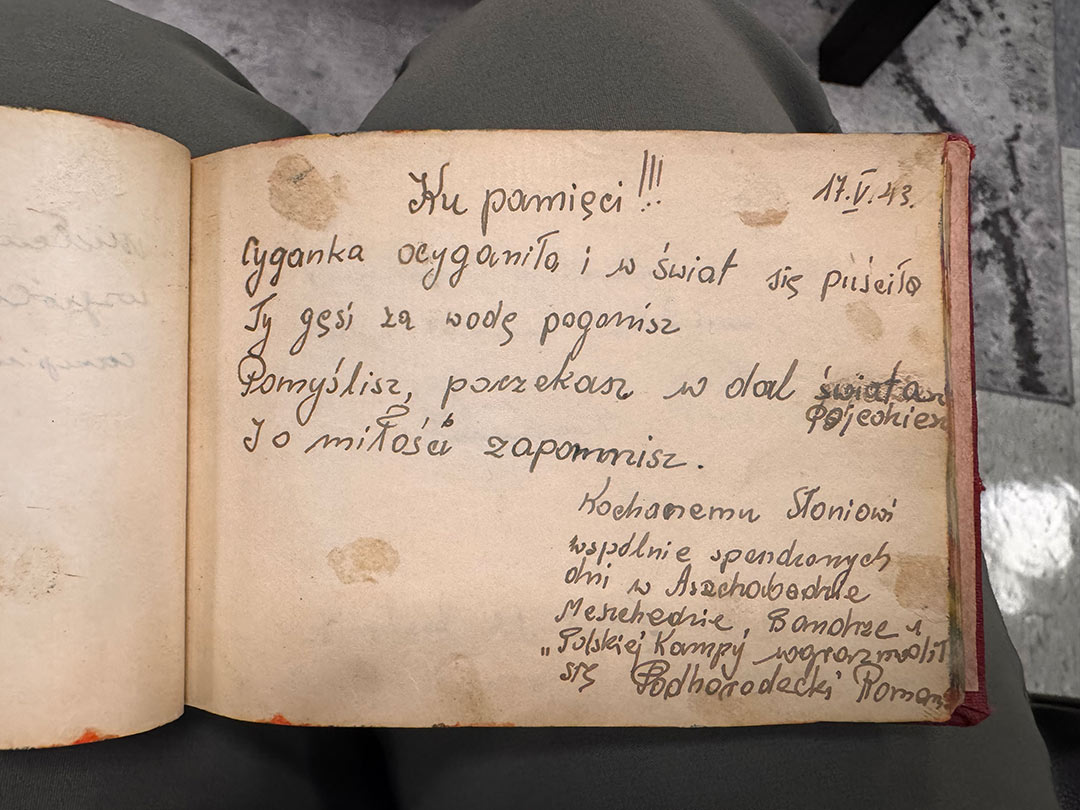 Ku pamięci!!! 17.V.43.
Cyganka ocyganiła i w świat się puściła
Ty gęsi za wodę pogonisz
Pomyślisz, poczekasz w dal
pojedziesz
I o miłości zapomnisz.
Kochanemu Słoniowi
wspólnie spendzonych
dni w Aszchabadzie
Meszhedzie, Bandrze i
"Polskiej Kampy wgrazmolił
się Podhorodecki Roman